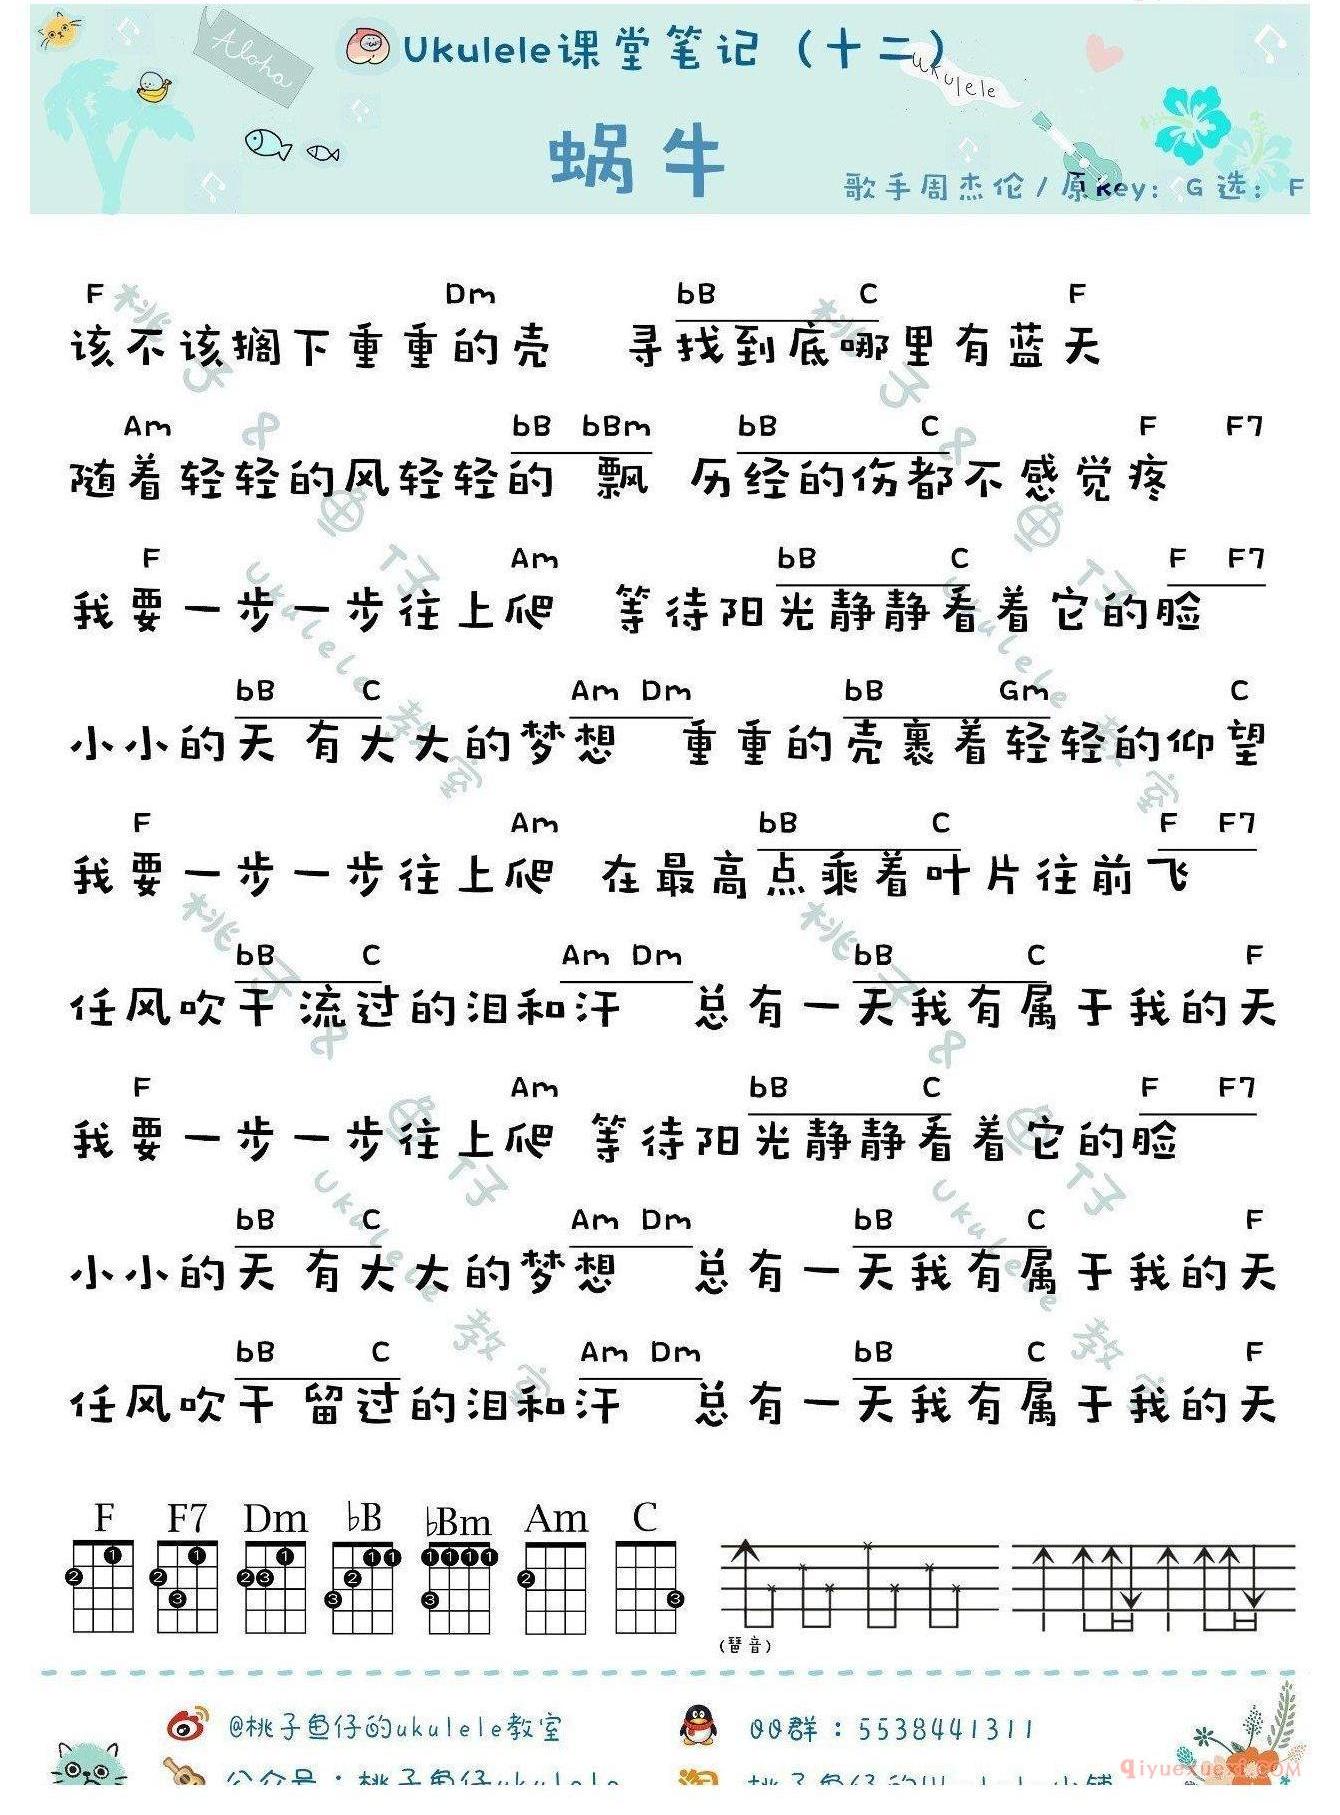 Aloha
Ukulele课堂笔记（十二）
ukulele
蜗牛
歌手周杰伦/原key: G 选: F
F Dm bB C F
该不该搁下重重的壳 寻找到底哪里有蓝天
Am bB bBm bB C F F7
随着轻轻的风轻轻的 飘 历经的伤都不感觉疼
F Am bB C F F7
我要一步一步往上爬 等待阳光静静看着它的脸
bB C Am Dm bB Gm C
小小的天 有大大的梦想 重重的壳裹着轻轻的仰望
F Am bB C F F7
我要一步一步往上爬 在最高点乘着叶片往前飞
bB C Am Dm bB C F
任风吹干 流过的泪和汗 总有一天我有属于我的天
F Am bB C F F7
我要一步一步往上爬 等待阳光静静看着它的脸
bB C Am Dm bB C F
小小的天 有大大的梦想 总有一天我有属于我的天
bB C Am Dm bB C F
任风吹干 留过的泪和汗 总有一天我有属于我的天
桃子&鱼仔ukulele教室
桃子&鱼仔ukulele教室
桃子&鱼仔ukulele教室
桃子&鱼仔ukulele教室
F F7 Dm ♭B ♭Bm Am C
(琶音)
@桃子鱼仔的ukulele教室
QQ群：5538441311
公众号：桃子鱼仔ukulele
桃子鱼仔的Ukulele小铺
qiyuexuexi.COM